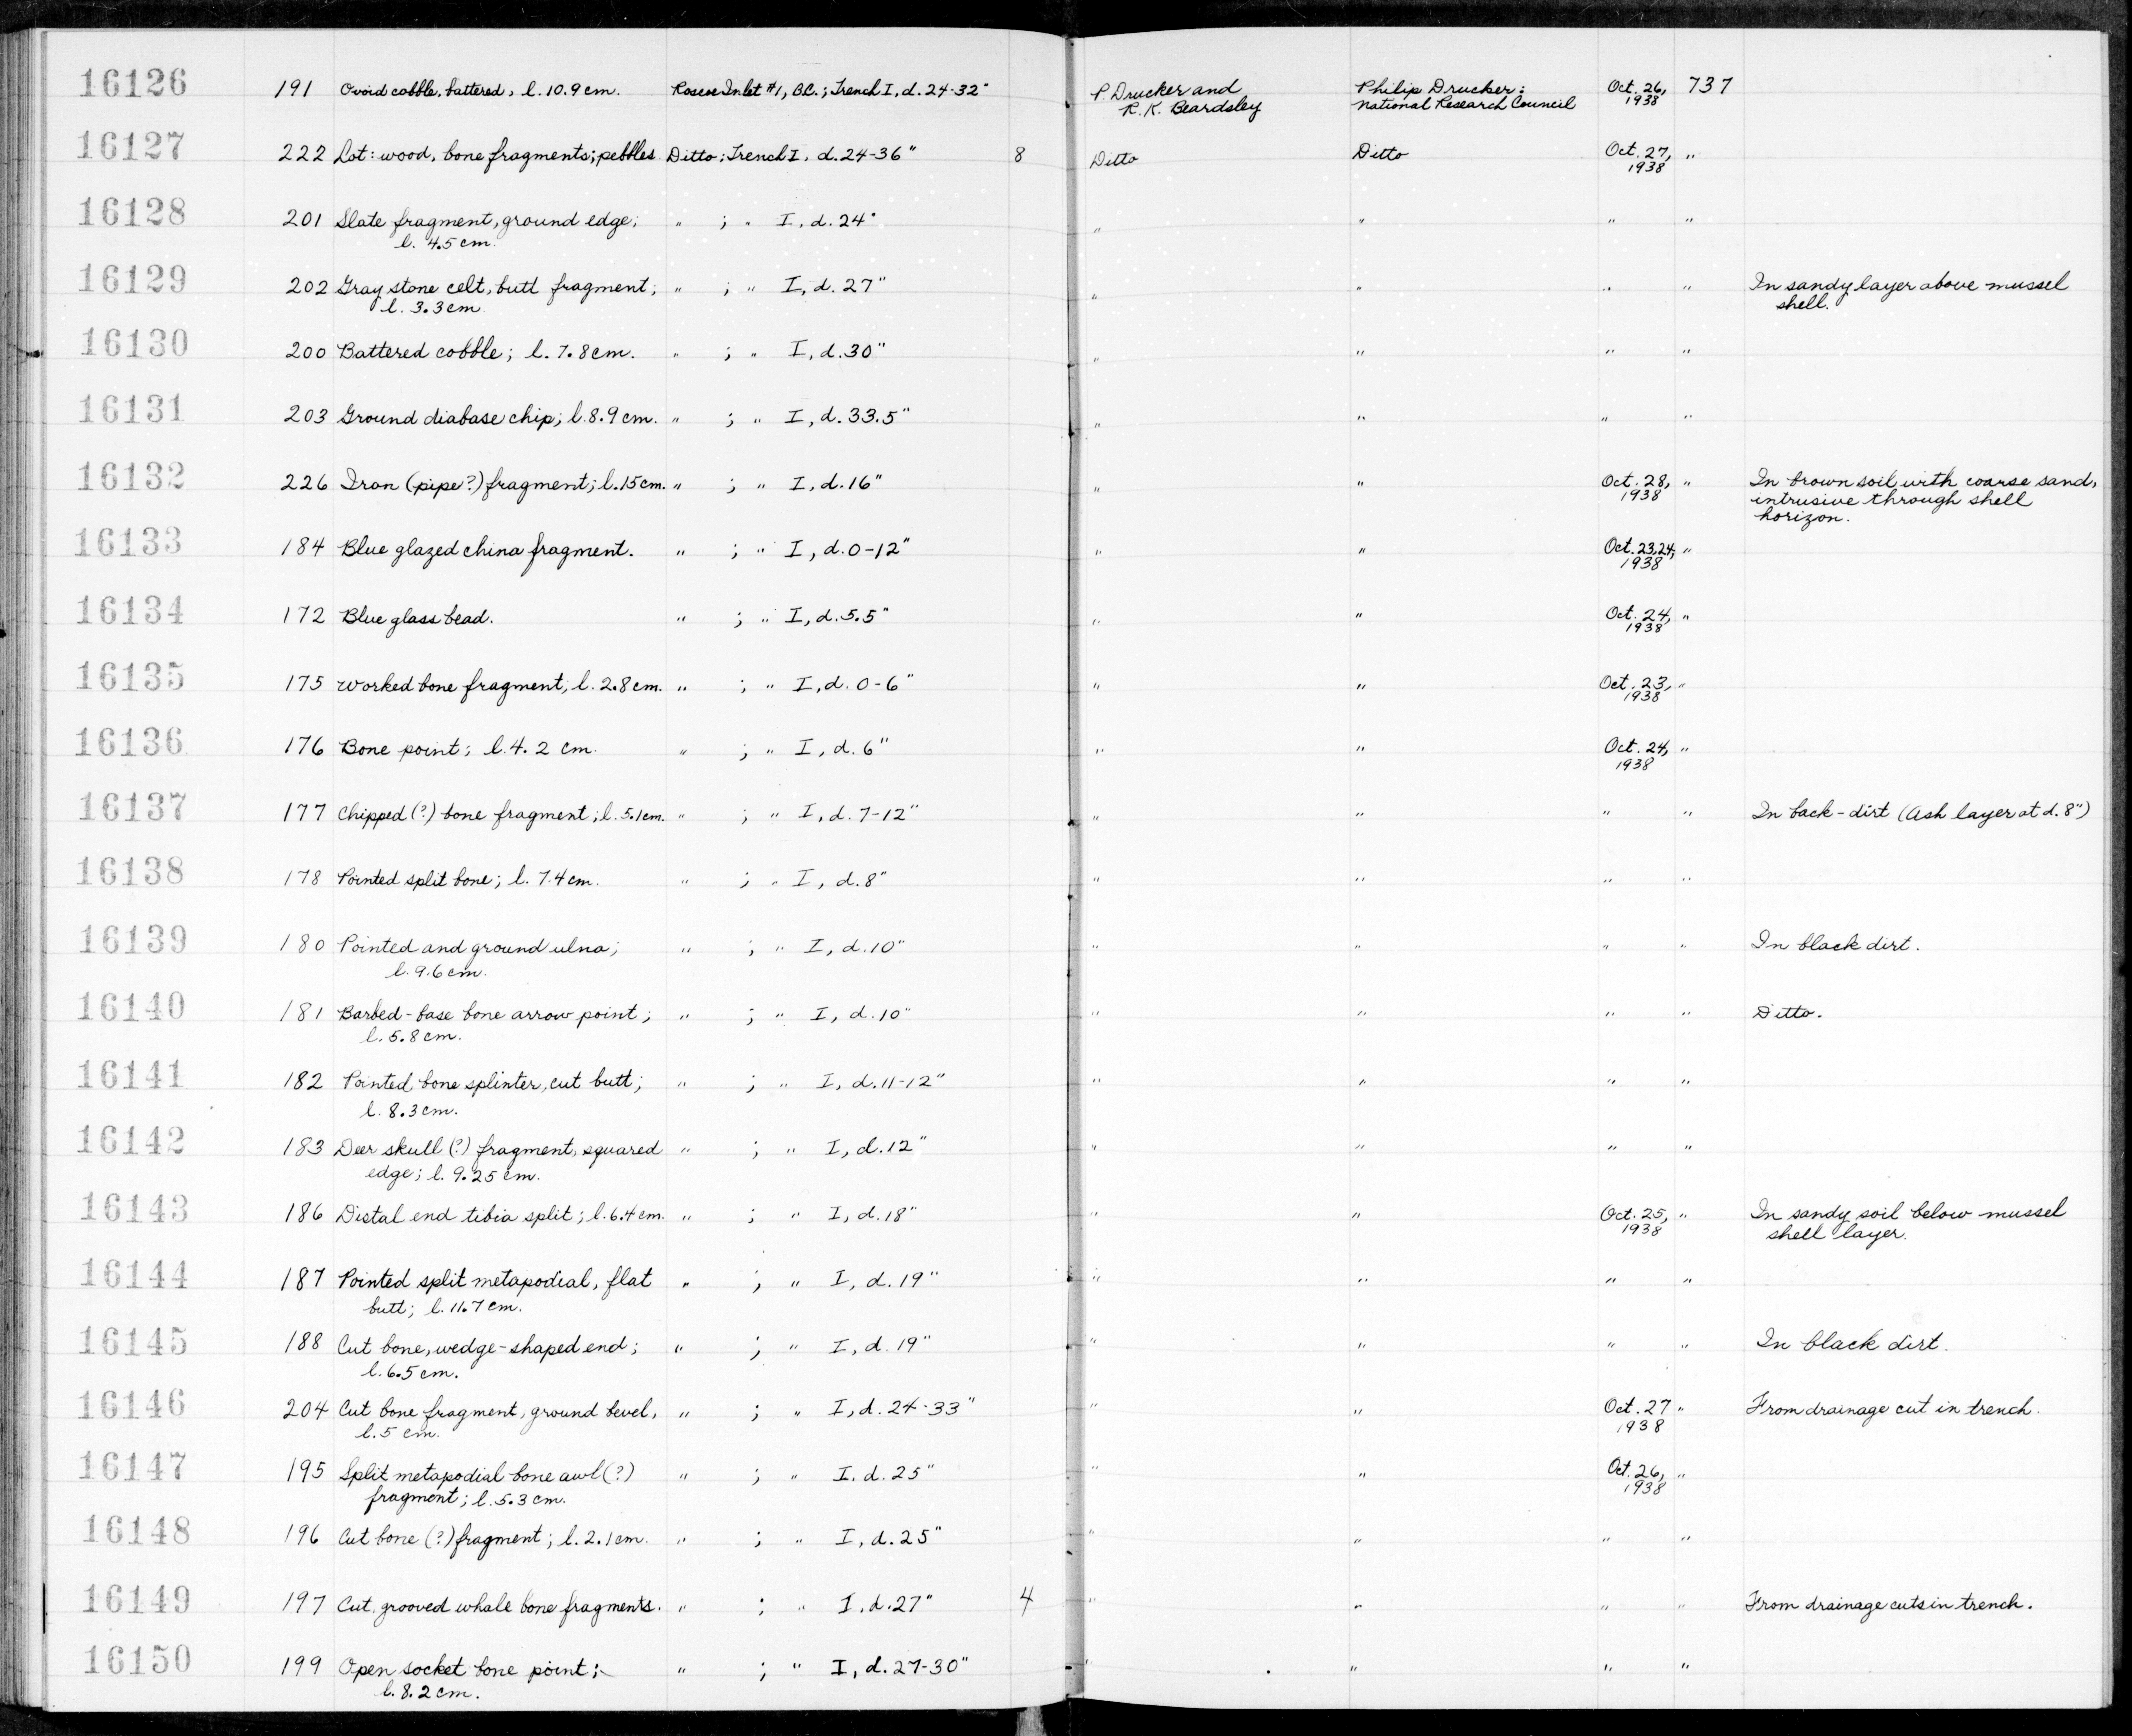 16126 191 Ovoid cobble, battered, l. 10.9 cm. Roscoe Inlet #1, B.C.; Trench I, d. 24-32" P. Drucker and Philip Drucker: Oct. 26, 737
R. K. Beardsley National Research Council 1938
16127 222 Lot: wood, bone fragments; pebbles Ditto; Trench I, d. 24-36" 8 Ditto Ditto Oct. 27, "
1938
16128 201 Slate fragment, ground edge; " ; " I, d. 24" " " " "
l. 4.5 cm.
16129 202 Gray stone celt, butt fragment; " ; " I, d. 27" " " " " In sandy layer above mussel
l. 3.3 cm. shell.
16130 200 Battered cobble; l. 7.8 cm. " ; " I, d. 30" " " " "
16131 203 Ground diabase chip; l. 8.9 cm. " ; " I, d. 33.5" " " " "
16132 226 Iron (pipe?) fragment; l. 15 cm. " ; " I, d. 16" " " Oct. 28, " In brown soil with coarse sand,
1938 intrusive through shell
horizon.
16133 184 Blue glazed china fragment. " ; " I, d. 0-12" " " Oct. 23,24, "
1938
16134 172 Blue glass bead. " ; " I, d. 5.5" " " Oct. 24, "
1938
16135 175 Worked bone fragment; l. 2.8 cm. " ; " I, d. 0-6" " " Oct. 23, "
1938
16136 176 Bone point; l. 4.2 cm. " ; " I, d. 6" " " Oct. 24, "
1938
16137 177 Chipped (?) bone fragment; l. 5.1 cm. " ; " I, d. 7-12" " " " " In back-dirt (Ash layer at d. 8")
16138 178 Pointed split bone; l. 7.4 cm. " ; " I, d. 8" " " " "
16139 180 Pointed and ground ulna; " ; " I, d. 10" " " " " In black dirt.
l. 9.6 cm.
16140 181 Barbed-base bone arrow point; " ; " I, d. 10" " " " " Ditto.
l. 5.8 cm.
16141 182 Pointed bone splinter, cut butt; " ; " I, d. 11-12" " " " "
l. 8.3 cm.
16142 183 Deer skull (?) fragment, squared " ; " I, d. 12" " " " "
edge; l. 9.25 cm.
16143 186 Distal end tibia split; l. 6.4 cm. " ; " I, d. 18" " " Oct. 25, " In sandy soil below mussel
1938 shell layer.
16144 187 Pointed split metapodial, flat " ; " I, d. 19" " " " "
butt; l. 11.7 cm.
16145 188 Cut bone, wedge-shaped end; " ; " I, d. 19" " " " " In black dirt.
l. 6.5 cm.
16146 204 Cut bone fragment, ground bevel, " ; " I, d. 24-33" " " Oct. 27 " From drainage cut in trench.
l. 5 cm. 1938
16147 195 Split metapodial bone awl (?) " ; " I, d. 25" " " Oct. 26, "
fragment; l. 5.3 cm. 1938
16148 196 Cut bone (?) fragment; l. 2.1 cm. " ; " I, d. 25" " " " "
16149 197 Cut, grooved whale bone fragments. " ; " I, d. 27" 4 " " " " From drainage cuts in trench.
16150 199 Open socket bone point; " ; " I, d. 27-30" " " " "
l. 8.2 cm.